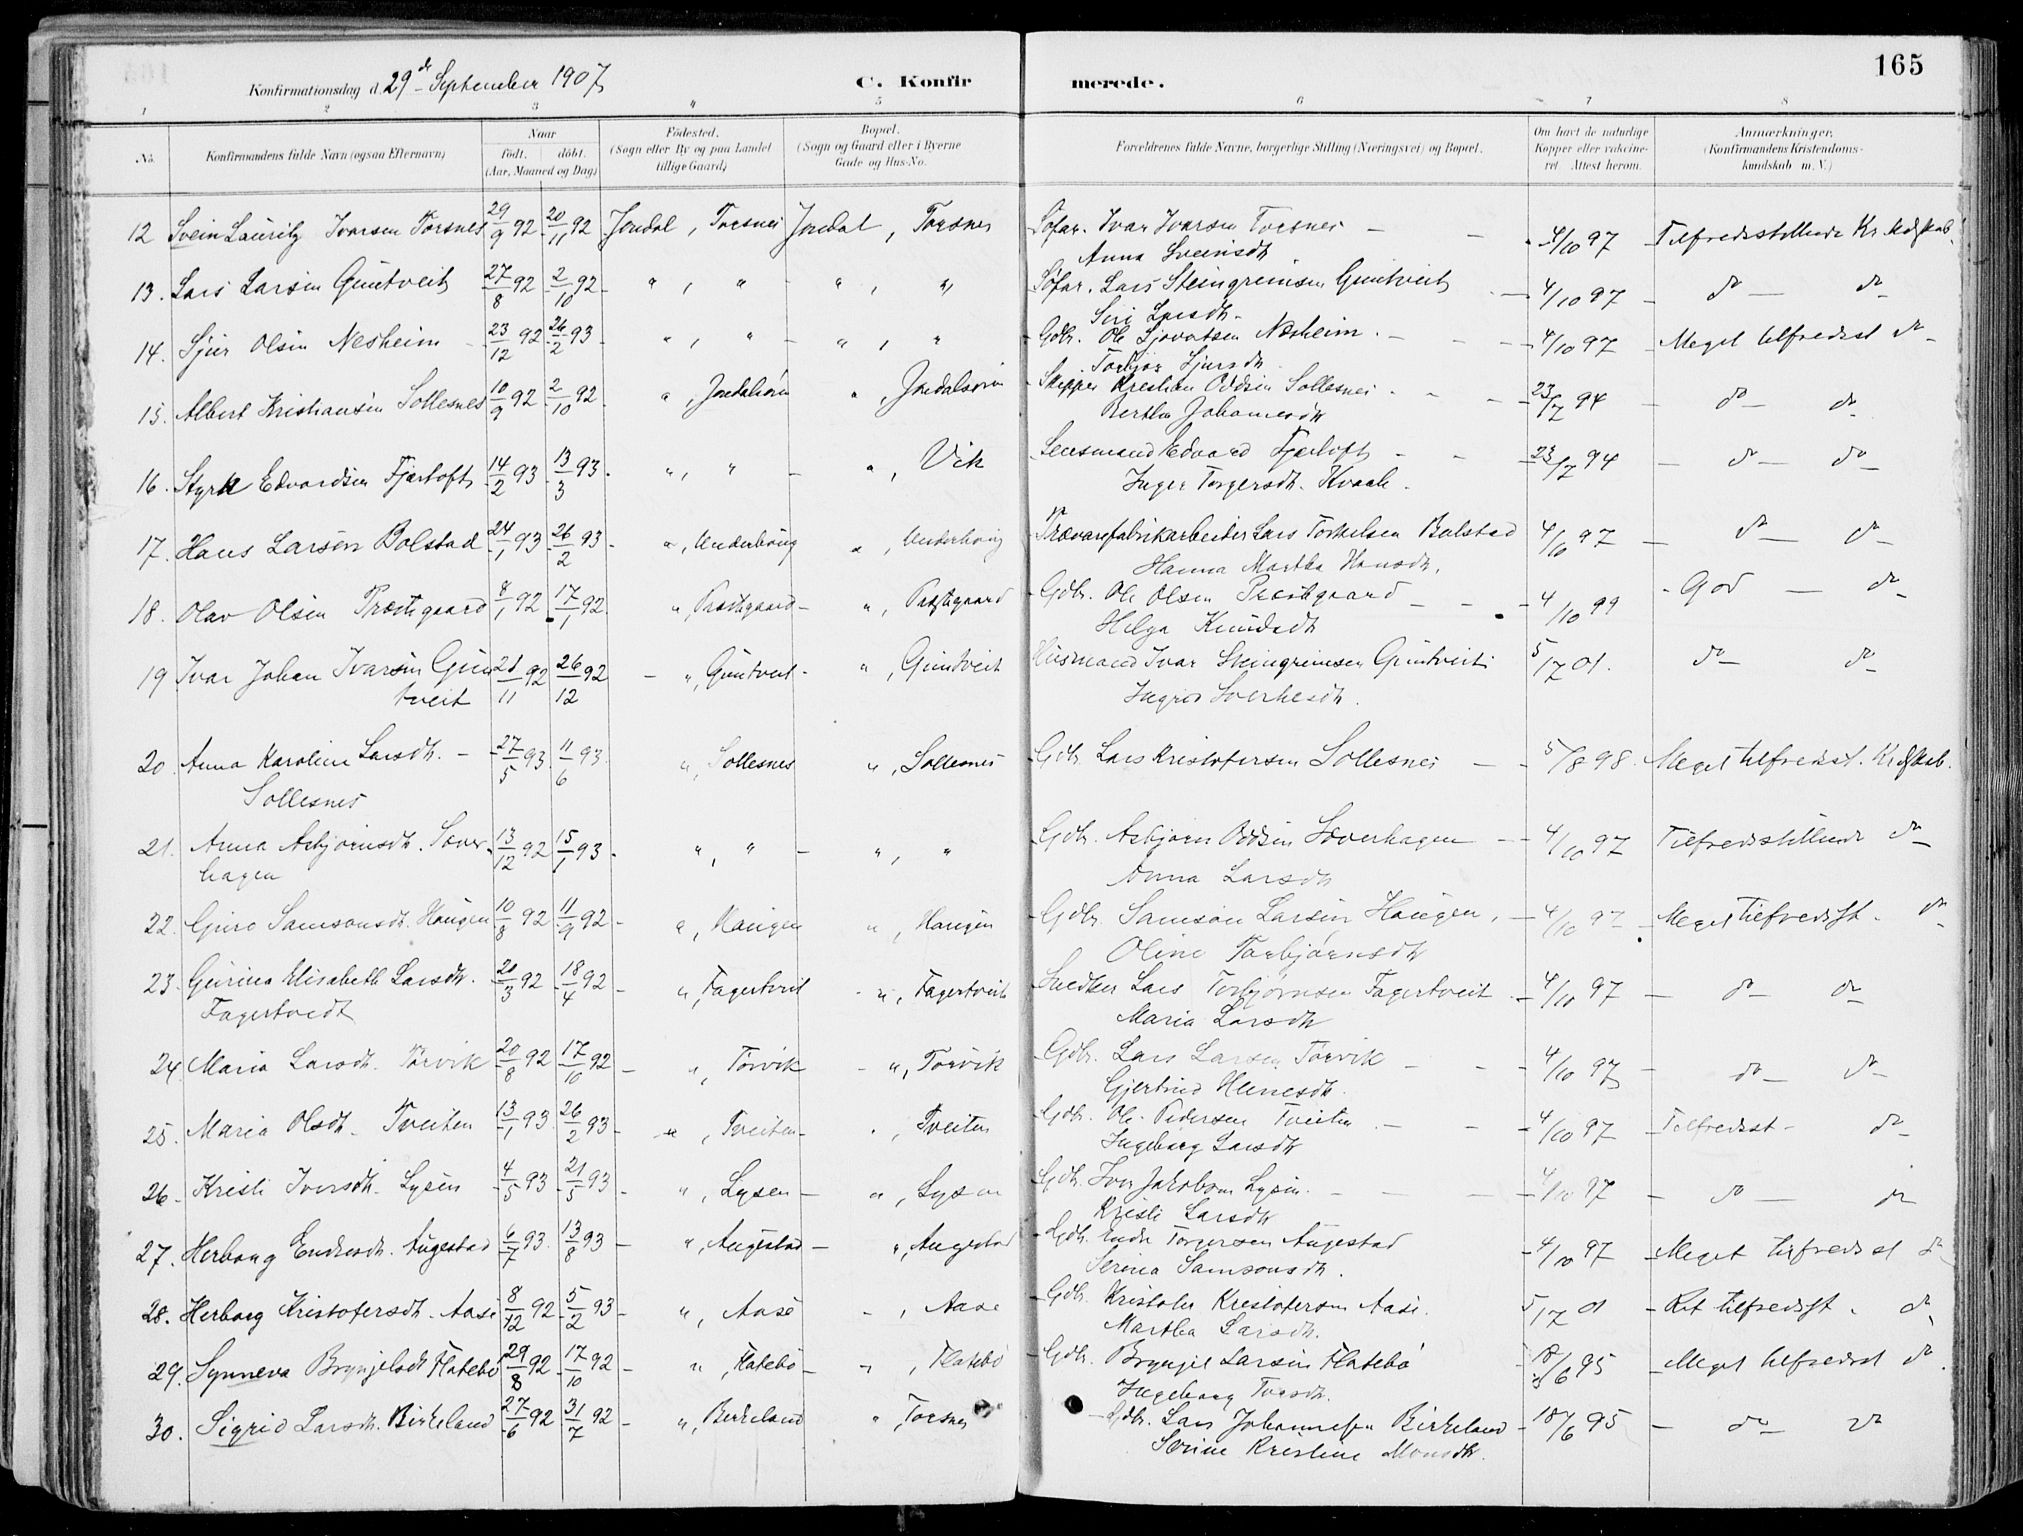 165
Konfirmationsdag d. 29de September 1907
C. Konfirmerede.
1 2 3 4 5 6 7 8
No.
Konfirmandens fulde Navn (ogsaa Efternavn)
Naar
født. døbt.
(Aar, Maaned og Dag)
Födested.
(Sogn eller By og paa Landet
tillige Gaard)
Bopæl.
(Sogn og Gaard eller i Byerne
Gade og Hus-No.
Forældrenes fulde Navne, borgerlige Stilling (Næringsvei) og Bopæl.
Om havt de naturlige
Kopper eller vakcine-
ret Attest herom.
Anmærkninger.
(Konfirmandens Kristendoms-
kundskab m. V.)
12 Svein Lauritz Ivarsen Torsnes 29/9 92 20/11 92 Jondal, Torsnes Jondal, Torsnes Søfar. Ivar Ivarsen Torsnes 4/10 97 Tilfredsstillende Kr. kdskab.
Anna Sveinsdtr
13. Lars Larsen Guntveit 27/8 92 2/10 92 " , " " , " Søfar. Lars Steingrimsen Guntveit 4/10 97 do do
Siri Larsdtr
14. Sjur Olsen Nesheim 23/12 92 26/2 93 " , " " , " Gdbr. Ole Sjovatsen Nesheim 4/10 97 Meget tilfredsst do
Torbjør Sjursdtr
15. Albert Kristiansen Sollesnes 10/9 92 2/10 92 " , Jondalsøren " , Jondalsøren Skipper Kristian Oddsen Sollesnes 23/7 94 do do
Bertha Johannesdtr
16. Styrk Edvardsen Fjærtoft 14/2 93 13/3 93 " , " " , Vik Lensmand Edvard Fjærtoft 23/7 94 do do
Inger Torgersdtr. Kvaale.
17. Hans Larsen Bolstad 24/1 93 26/2 93 " , Underhaug " , Underhaug Trævarefabrikarbeider Lars Torkelsen Bolstad 4/10 97 do do
Hanna Martha Hansdtr.
18. Olav Olsen Præstgaard 8/1 92 17/1 92 " , Præstgaard " , Præstgaard Gdbr. Ole Olsen Præstgaard 4/10 99 God do
Helga Knudsdtr
19 Ivar Johan Ivarsen Gun 21/11 92 26/12 92 " , Guntveit " , Guntveit Husmand Ivar Steingrimsen Guntveit 5/7 01. do do
tveit Ingrid Sverkesdtr.
20. Anna Karoline Larsdtr. 27/5 93 11/6 93 " , Sollesnes " , Sollesnes Gdbr. Lars Kristofersen Sollesnes 5/8 98. Meget tilfredsst. Kr. dskab.
Sollesnes
21. Anna Asbjørnsdtr. Sæver- 13/12 92 15/1 93 " , " " , " Gdbr. Asbjørn Oddsen Sæverhagen 4/10 97 Tilfredsstillende do
hagen Anna Larsdtr
22. Guro Samsonsdtr. Haugen 10/8 92 11/9 92 " , Haugen " , Haugen Gdbr. Samson Larsen Haugen. 4/10 97 Meget tilfredsst. do
Oline Torbjørnsdtr
23. Gurina Elisabeth Larsdtr. 20/3 92 18/4 92 " , Fagertveit " , Fagertveit Snedker Lars Torbjørnsen Fagertveit 4/10 97 do do
Fagertvedt Maria Larsdtr
24. Maria Larsdtr. Torvik 20/8 92 17/10 92 " , Torvik " , Torvik Gdbr. Lars Larsen Torvik 4/10 97 do do
Gjertrud Helnesdtr.
25. Maria Olsdtr. Tveiten 13/1 93 26/2 93 " , Tveiten " , Tveiten Gdbr. Ole Pedersen Tveiten 4/10 97 Tilfredsst do
Ingeborg Larsdtr
26. Kristi Iversdtr. Lysen 4/5 93 21/5 93 " , Lysen " , Lysen Gdbr. Iver Jakobsen Lysen. 4/10 97 do do
Kristi Larsdtr
27. Herborg Endresdtr. Augestad 6/7 93. 13/8 93 " , Augestad " , Augestad Gdbr. Endre Torgersen Augestad 4/10 97 Meget tilfredsst do
Serena Samsonsdtr.
28. Herborg Kristofersdtr. Aase 8/12 92 5/2 93 " , Aase " , Aase Gdbr. Kristofer Kristofersen Aase. 5/7 01 Ret tilfredsst. do
Martha Larsdtr.
29. Synneva Brynjelsdtr Flatebø 29/8 92 17/10 92 " , Flatebø " , Flatebø Gdbr. Brynjel Larsen Flatebø 18/6 95 Meget tilfredsst do
Ingeborg
30. Sigrid Larsdtr. Birkeland 27/6 92 31/7 92 " , Birkeland " , Torsnes Gdbr. Lars Johannesen Birkeland 18/6 95 do do
Serine Kristine Monsdtr.